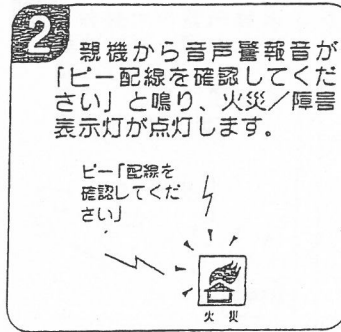 2
親機から音声警報音が
「ピー配線を確認してくだ
さい」と鳴り、火災／障害
表示灯が点灯します。
ピー「配線を
確認してくだ
さい」
火災